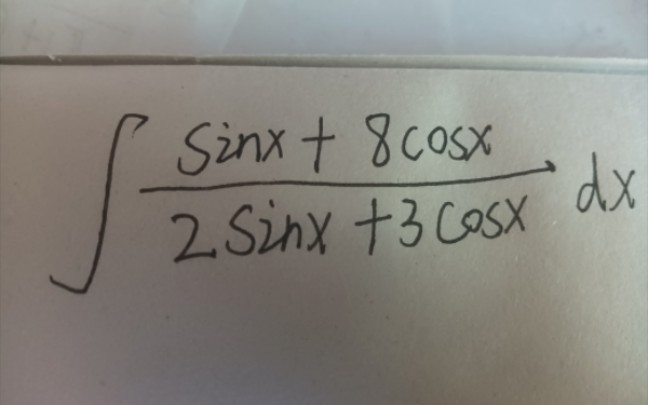 ∫ (sinx + 8cosx)/(2sinx + 3cosx) dx